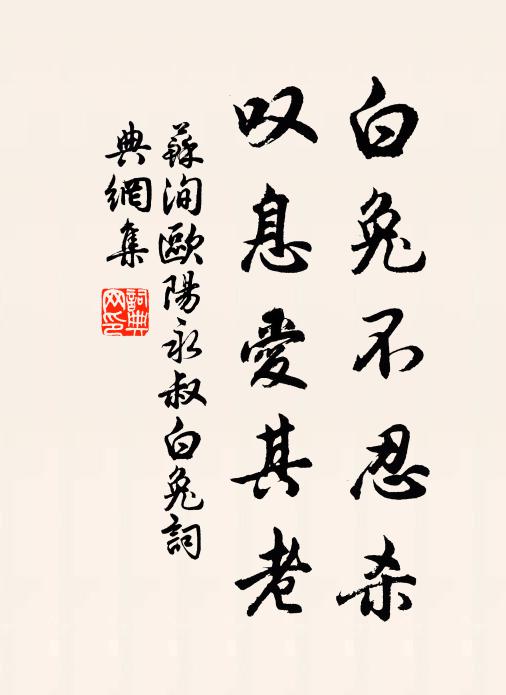 白兔不忍杀
叹息爱其老
蘇洵歐陽永叔白兔詞
典網集
詞典网印